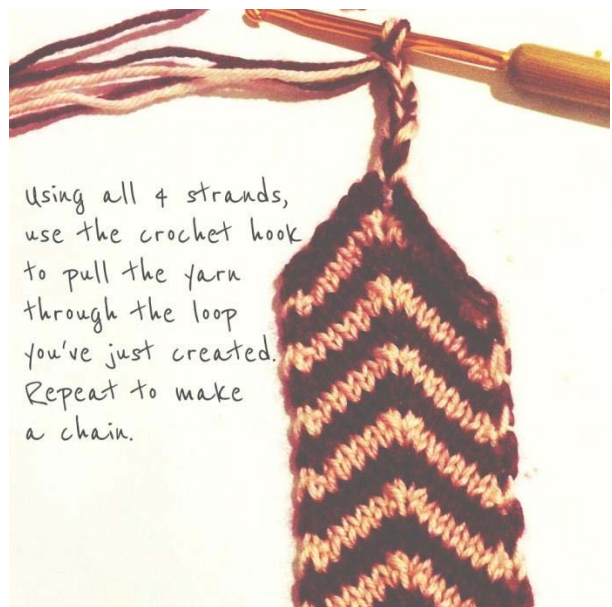 Using all 4 strands,
use the crochet hook
to pull the yarn
through the loop
you've just created.
Repeat to make
a chain.